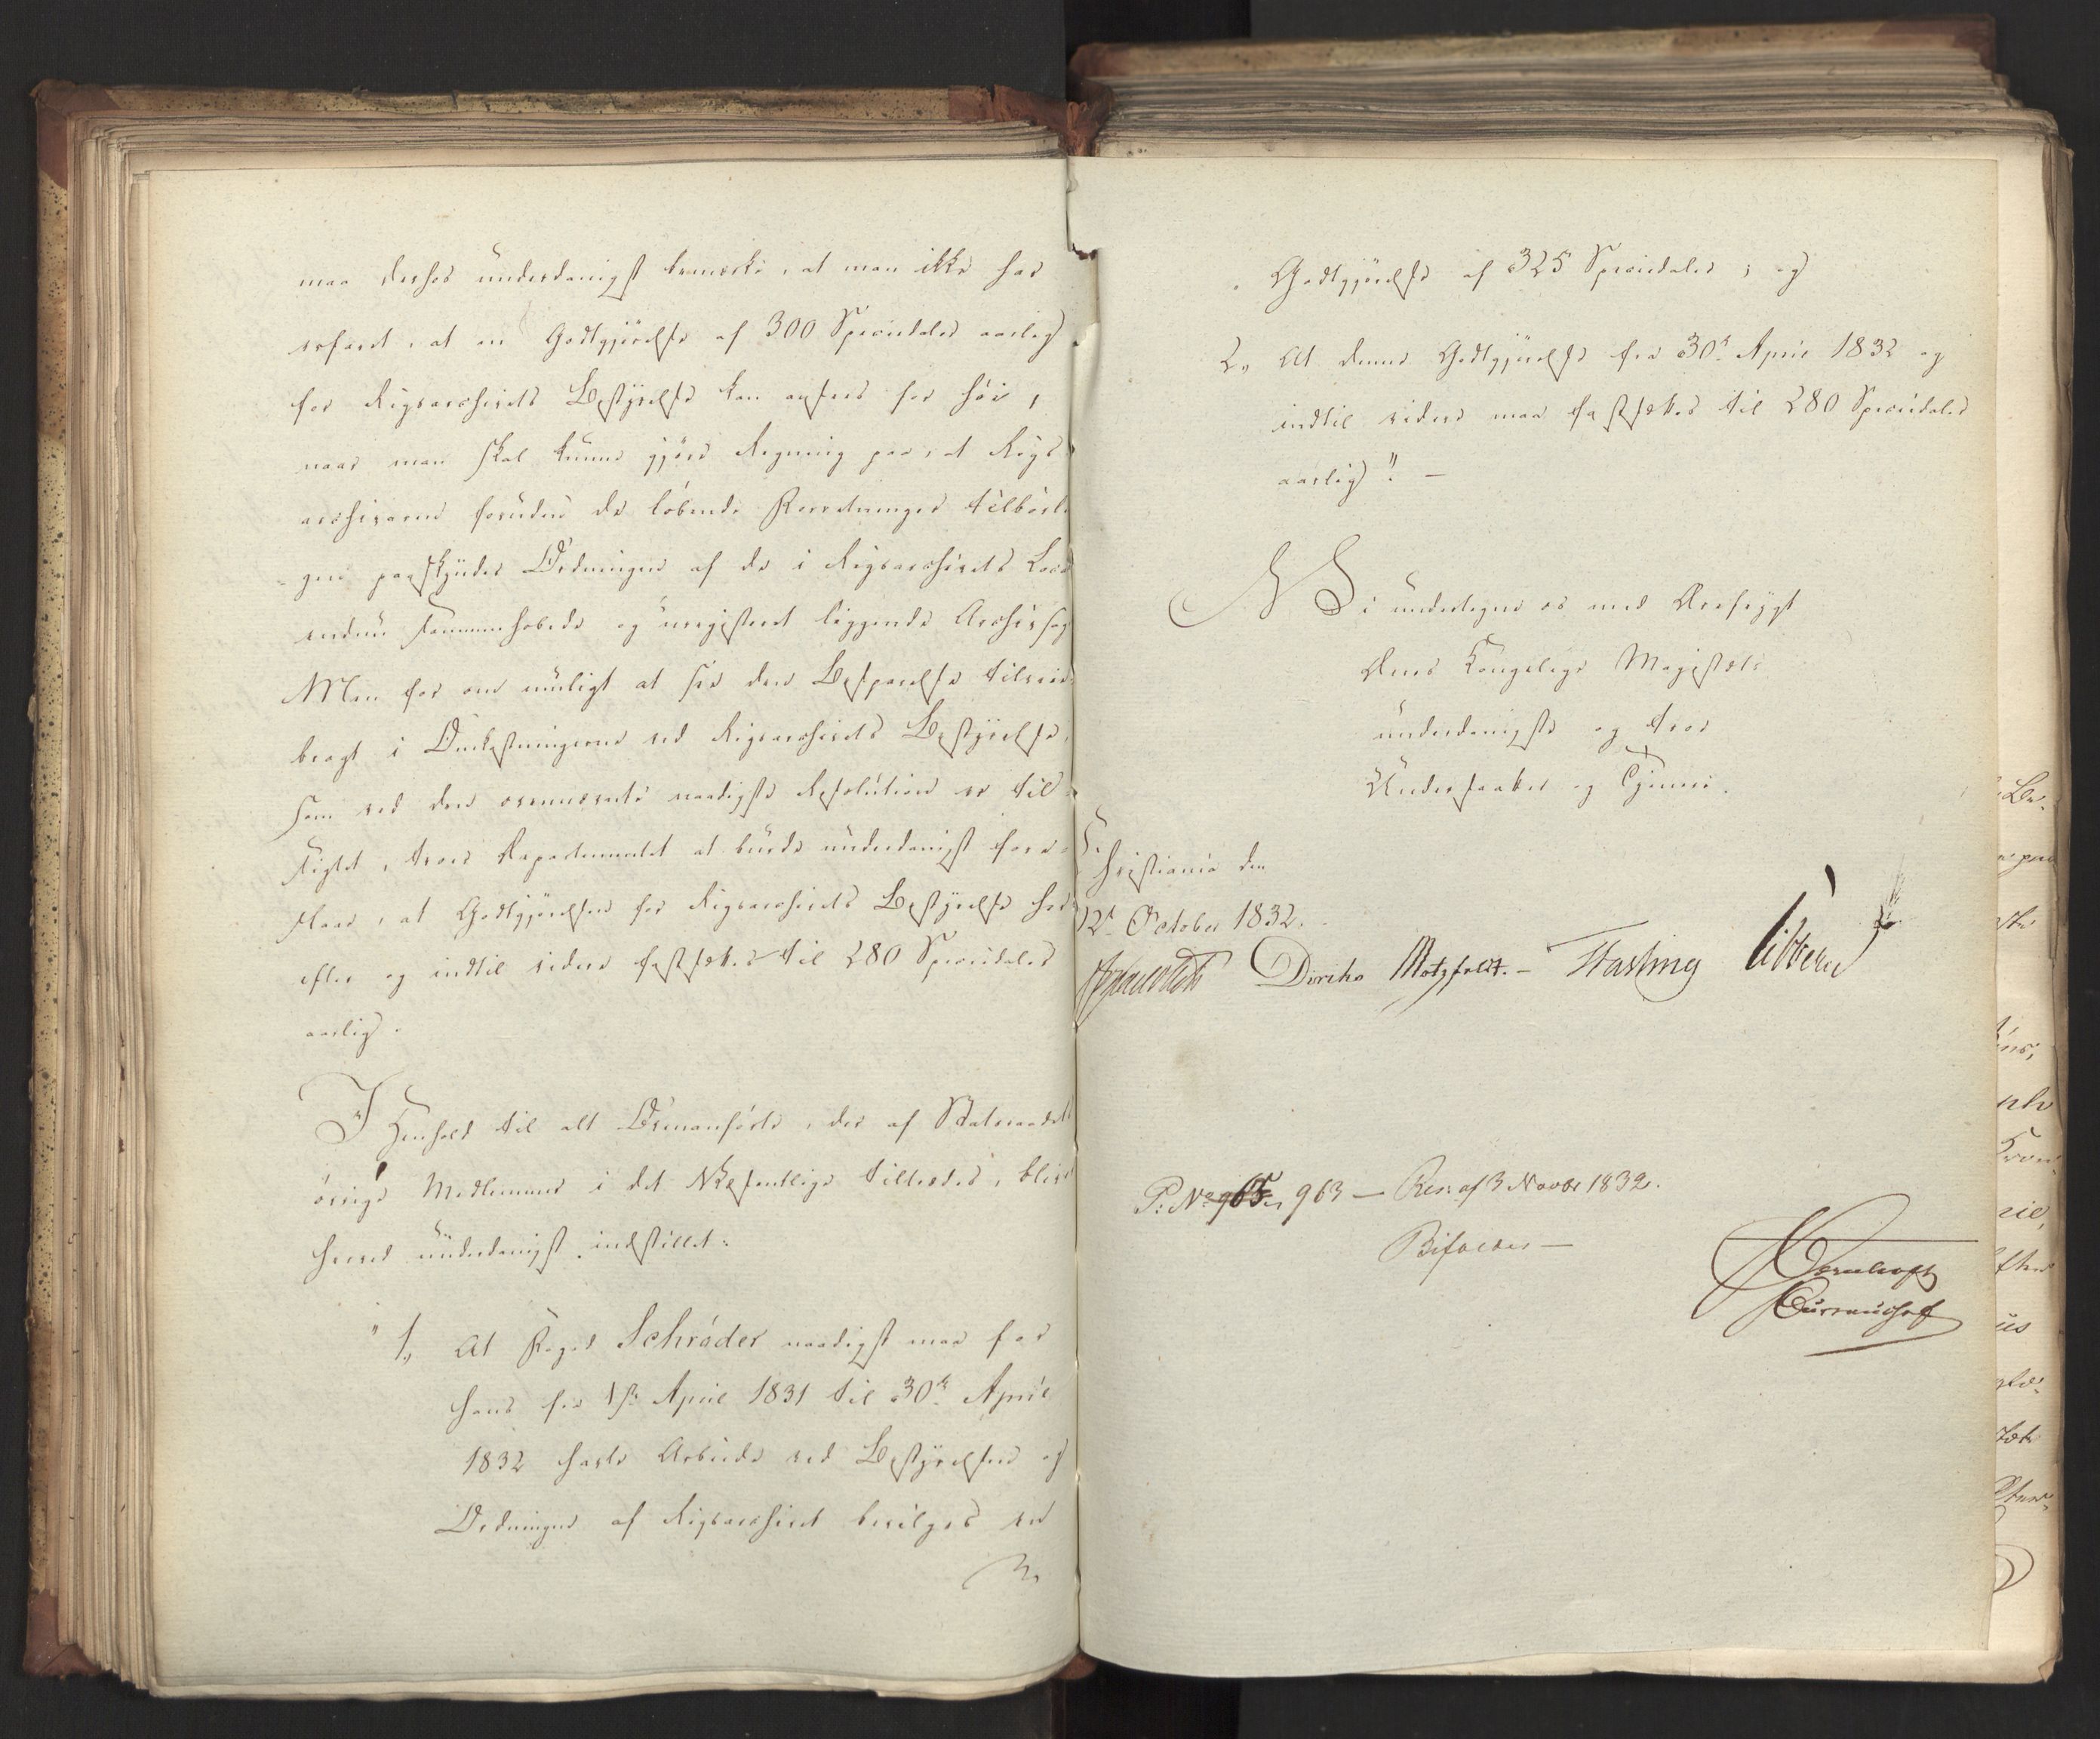 maa derhos underdanigst bemærke, at man ikke har
erfaret, at en Godtgjörelse af 300 Speciedaler aarlig
for Rigsarchivets Bestyrelse kan ansees for höi,
naar man skal kunne gjöre Regning paa, at Rigs
archivaren foruden de löbende Forretninger tilbörli
-gen paaskynder Ordningen af de i Rigsarchivets Locale
endnu sammenhobede og uregistreret liggende Archivsager
Men for om muligt at see den Besparelse tilveie-
bragt i Omkostningerne ved Rigsarchivets Bestyrelse,
som ved den ovennævnte naadigste Resolution er til-
sigtet, troer Departementet at burde underdanigst fore-
slaae, at Godtgjörelsen for Rigsarchivets Bestyrelse her-
efter og indtil videre fastsættes til 280 Speciedaler
aarlig.
I Henhold til alt Ovenanförte, der af Statsraadets
övrige Medlemmer i det Væsentlige tiltrædes, bliver
herved underdanigst indstillet:
" 1, At Foged Schröder naadigst maa for
hans fra 1ste April 1831 til 30te April
1832 havte Arbeide ved Bestyrelsen og
Ordningen af Rigsarchivet bevilges en
Godtgjörelse af 325 Speciedaler; og
2, At denne Godtgjörelse fra 30te April 1832 og
indtil videre maa fastsættes til 280 Speciedaler
aarlig". —
Vi undertegne os med Ærefrygt
Deres Kongelige Majestæts
underdanigste og troe
Undersaatter og Tjenere.
Christiania den
12te October 1832.
Diriks Motzfeldt. — Fasting Vibbern
P: No 965, 963 — Res: af 3 Novbr 1832.
Bifaldes —